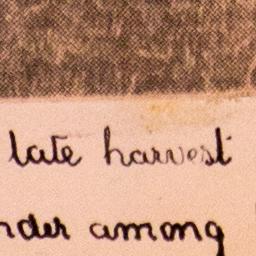 late harvest
nder among